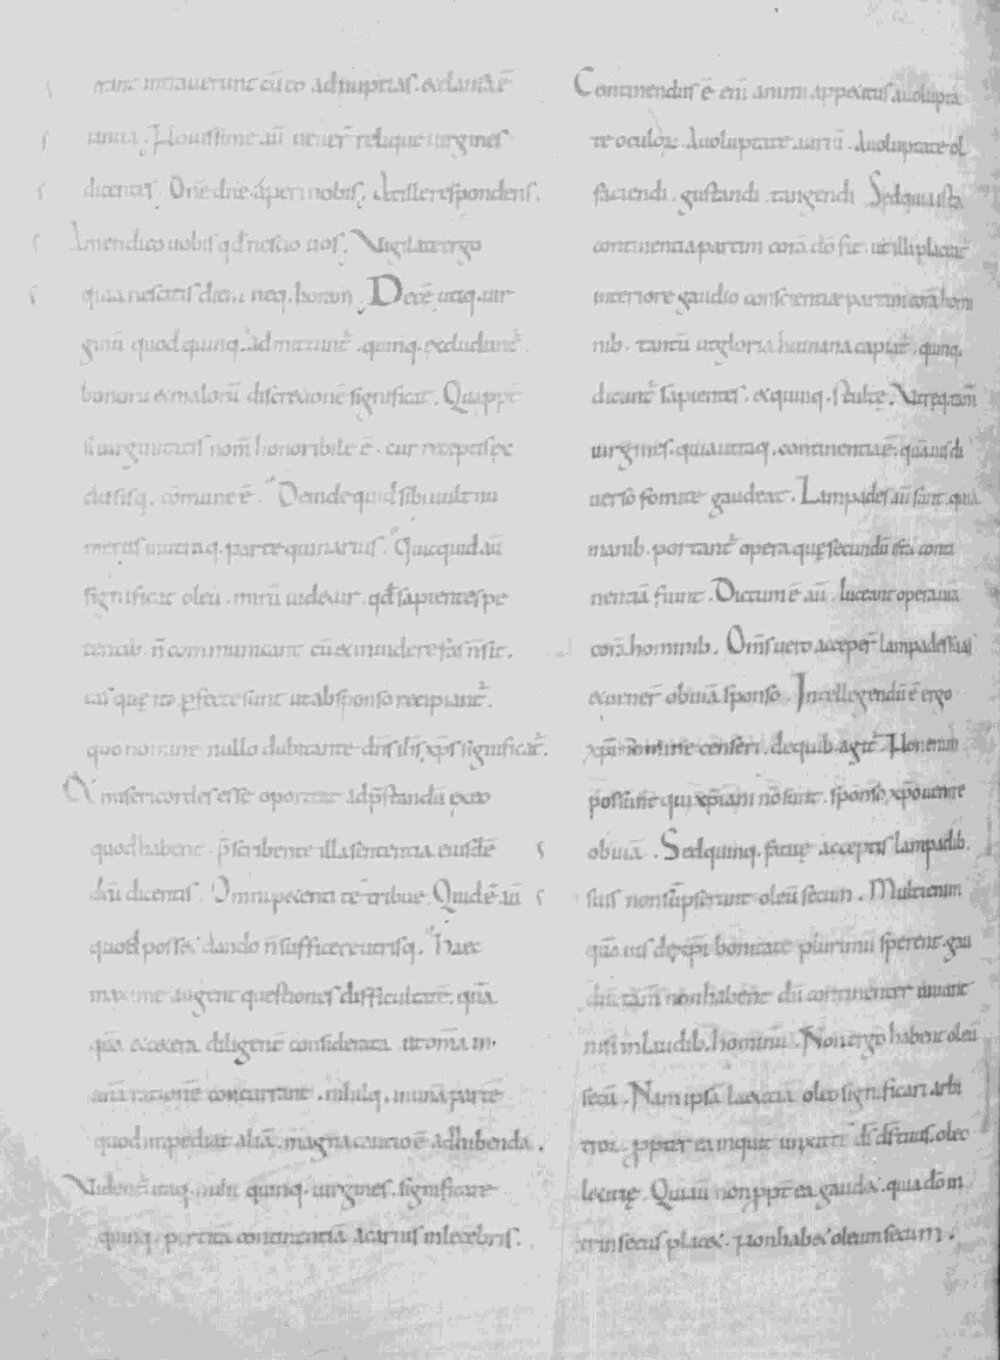 erant intraverunt cū eo ad nuptias. & clausa ē
ianua. Novissime aū vener̄ relique virgines
dicentes. Dn̄e dn̄e aperi nobis. At ille respondens.
Amen dico vobis qđ nescio vos. Vigilate ergo
quia nescitis diem neq. horam. Decē utiq. vir
ginū quod quinq. admittunt̄. quinq. excludunt̄.
bonorū & malorū discretionē significat. Quippe
si virginitatis nom̄ honoribile ē. cur receptis ex
clusisq. cōmune ē. Deinde quid sibi vult nu
merus in utraq. parte quinarius. Quicquid aū
significat oleū. mirū videtur. qđ sapientes pe
tentib. n̄ communicant cū & invidere fas n̄ sit.
eas quę ita ꝑfecte sunt ut ab sponso recipiant̄.
quo nomine nullo dubitante dn̄s ih̄s xp̄s significat̄.
& misericordes esse oportet ad p̄standū ex eo
quod habent. p̄scribente illa sententia eiusdē
dn̄i dicentis. Omni petenti te tribue. Quid ē aū
quod posse. dando n̄ sufficere utrisq. Haec
maxime augent questionis difficultatē. quā
quā & cetera diligent̄ considerata ut om̄ia in.
unā rationē concurrant. nihilq. in una parte
quod impediat aliā. magna cautio ē adhibenda.
Videnē itaq. mihi quinq. virgines. significare
quinq. ꝑtitā continentiā a carnis inlecebris.
Continendus ē enī animi appetitus a volupta
te oculoꝝ. A voluptate auriū. A voluptate ol
faciendi. gustandi. tangendi. Sed quia ista
continentia partim corā dō fit. ut illi placeat
interiore gaudio conscientiae partim corā homi
nib. tantū ut gloria humana capiat̄. quinq.
dicunt̄ sapientes. & quinq. stultę. Utręq. tam̄
virgines. quia utraq. continentia ē. quāvis di
verso fomite gaudeat. Lampades aū sunt. quia
manib. portant̄ opera quę secundū istā conti
nentiā fiunt. Dictum ē aū. luceant opera vr̄a
corā hominib. Om̄s vero acceper̄ lampades suas
& exiier̄ obviā sponso. Intellegendū ē ergo
xp̄i nomine censeri. de quib. agit̄. Non enim
possunt qui xp̄iani nō sunt. sponso xp̄o venire
obviā. Sed quinq. fatuę acceptis lampadib.
suis non sūpserunt oleū secum. Multi enim
quāvis de xp̄i bonitate plurimū sperent. gau
diū tam̄ non habent dū continenter vivunt
nisi in laudib. hominū. Non ergo habent oleū
secū. Nam ipsā laetitiā oleo significari arbi
troꝛ. ꝓpter ea inquit unxit te d̄s d̄s tuus. oleo
letitię. Qui aū non ꝓpt̄ ea gaudet. quia dō in
trinsecus placet. non habet oleum secum.